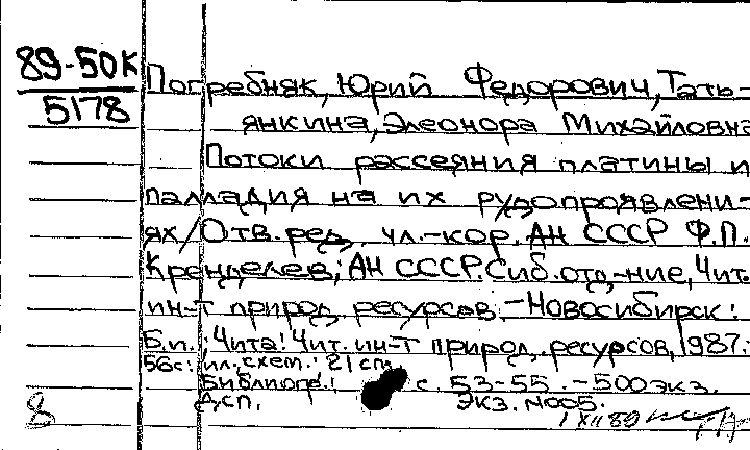 89-50К
5178
Погребняк, Юрий Федорович, Тать-
янкина, Элеонора Михайловна
Потоки рассеяния платины и
палладия на их рудопроявлени-
ях/Отв. ред. чл.-кор. АН СССР Ф.П.
Кренделев; АН СССР. Сиб. отд-ние, Чит.
ин-т природ. ресурсов. - Новосибирск:
Б.и.; Чита: Чит. ин-т природ. ресурсов, 1987.-
56с.: ил., схем.; 21 см
Библиогр.: с. 53-55. - 500 экз.
Дсп. Экз. №005.
8 1 XII 89